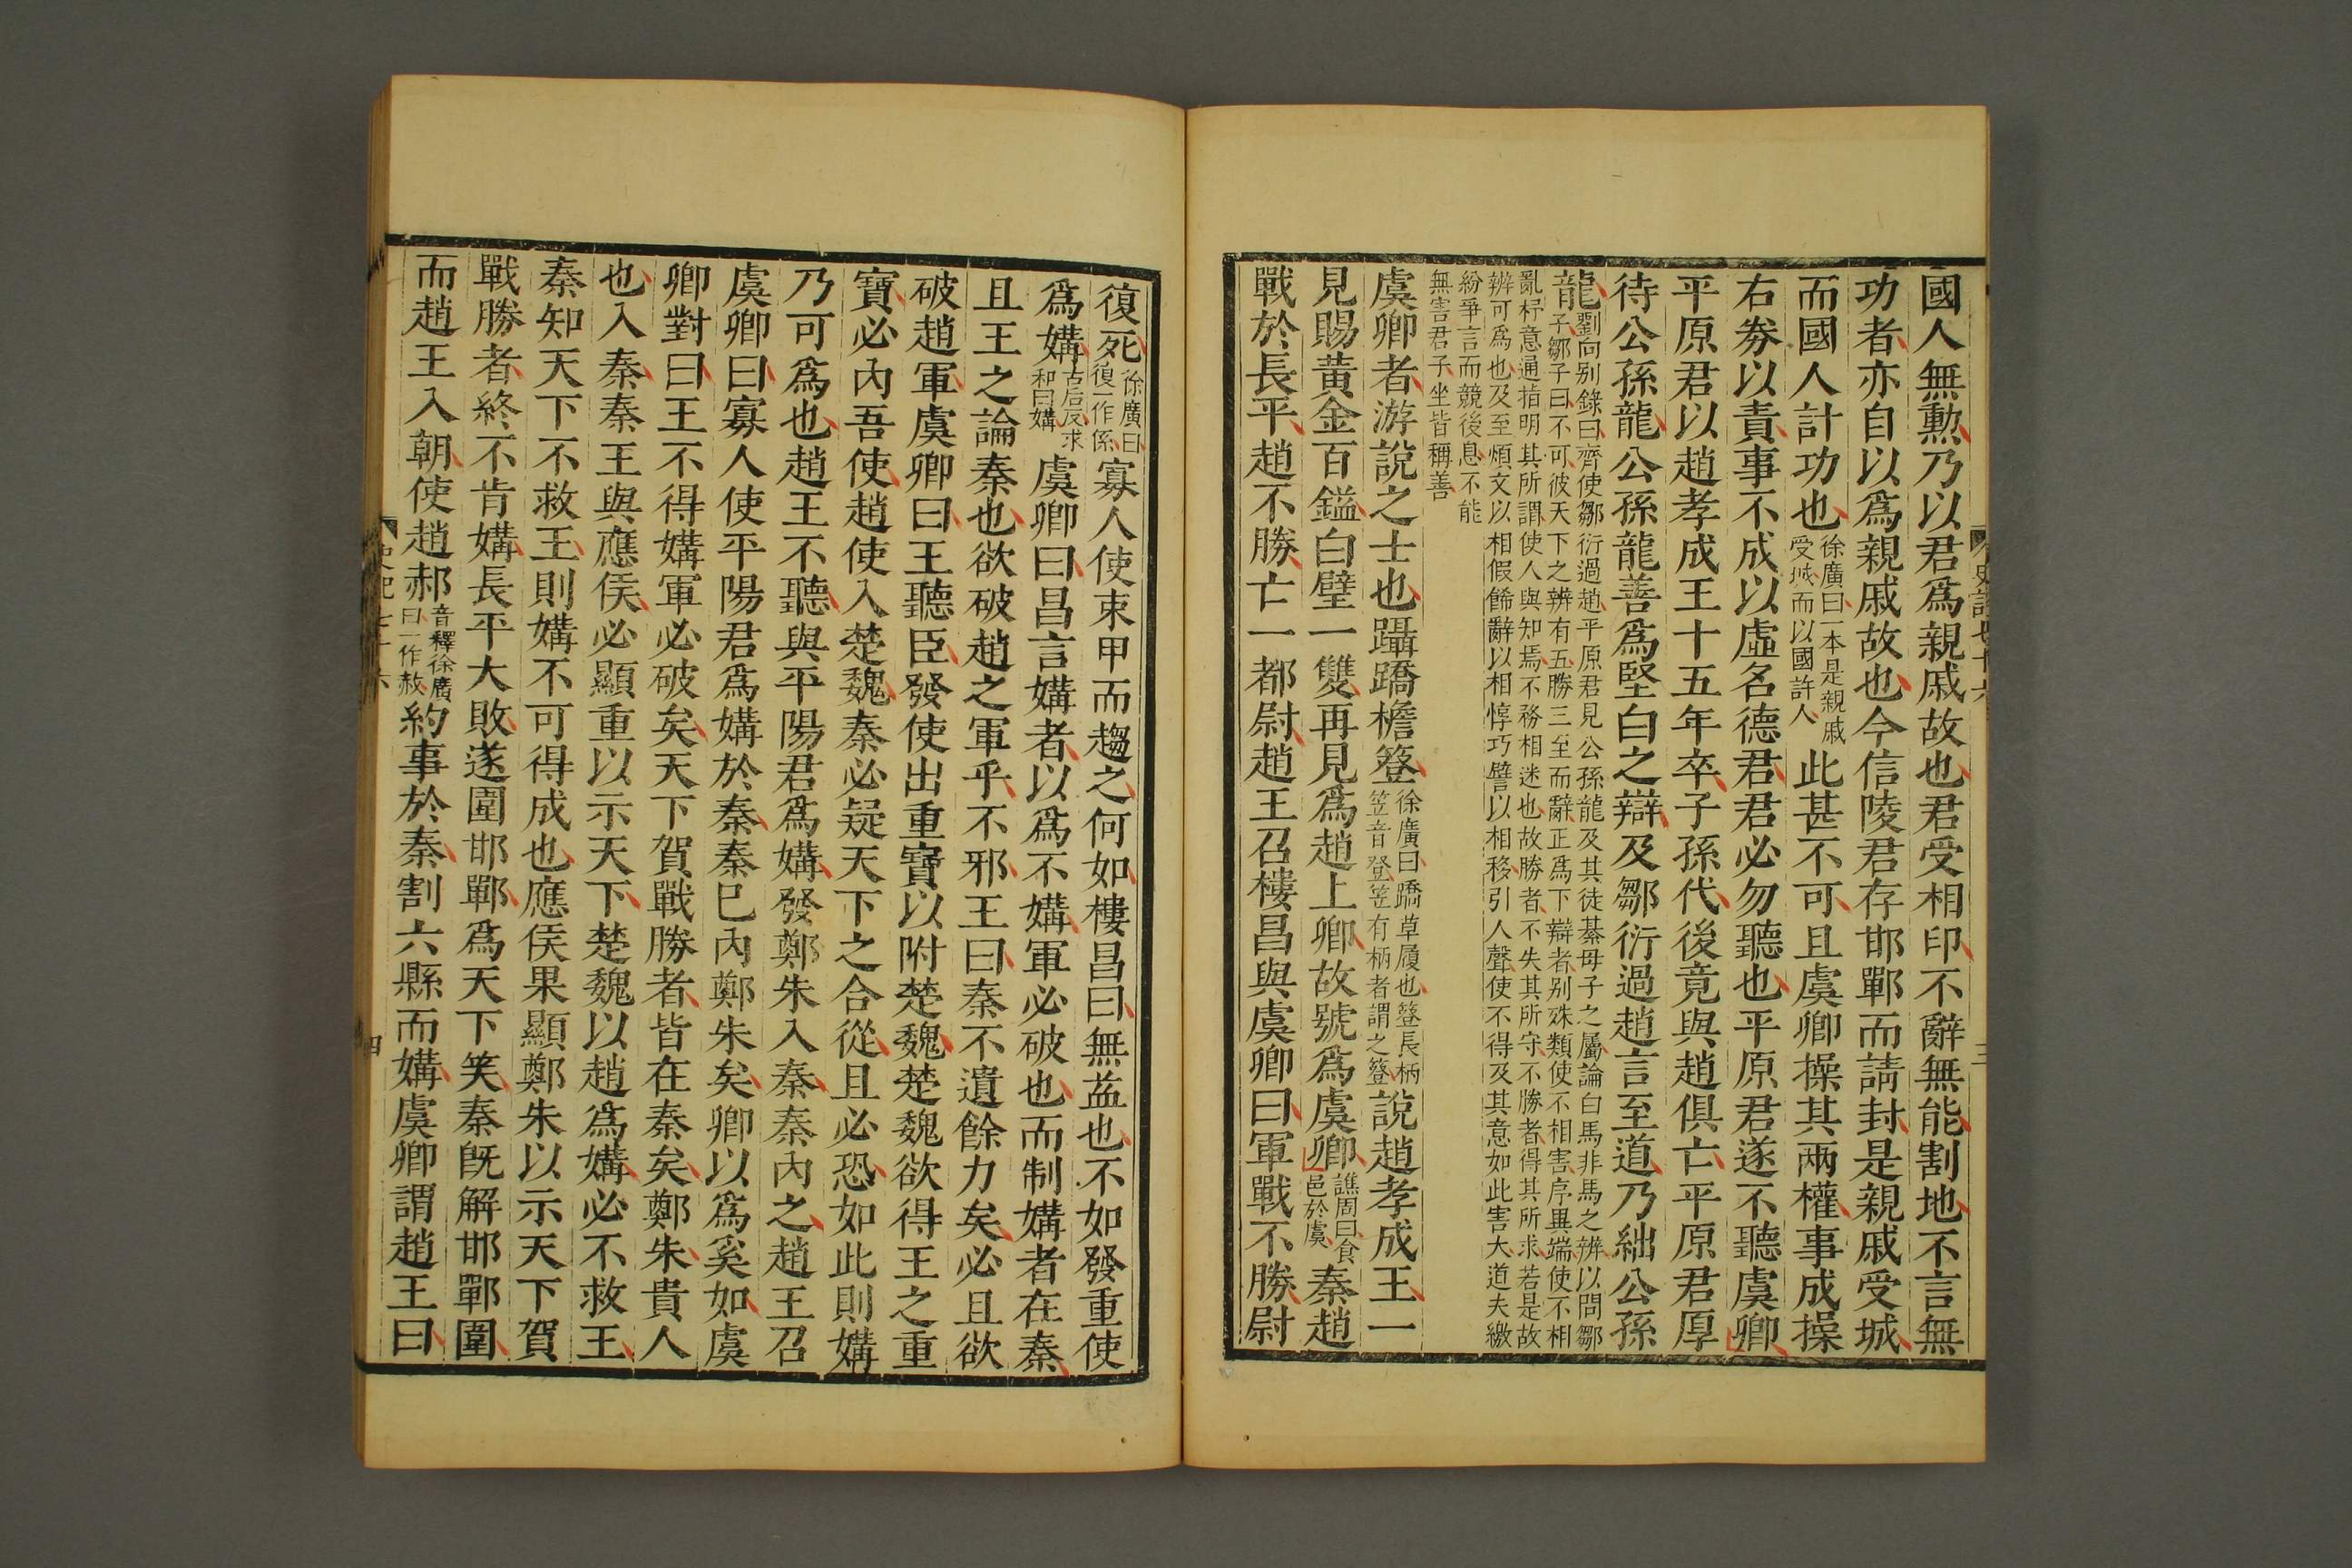 國人無勲乃以君爲親戚故也君受相印不辭無能割地不言無
功者亦自以爲親戚故也今信陵君存邯鄲而請封是親戚受城
而國人計功也
徐廣曰一本是親戚
受城而以國許人
此甚不可且虞卿操其兩權事成操
右劵以責事不成以虛名德君君必勿聽也平原君遂不聽虞卿
平原君以趙孝成王十五年卒子孫代後竟與趙俱亡平原君厚
待公孫龍公孫龍善爲堅白之辯及鄒衍過趙言至道乃絀公孫
龍
劉向別錄曰齊使鄒衍過趙平原君見公孫龍及其徒綦母子之屬論白馬非馬之辨以問鄒
子鄒子曰不可彼天下之辨有五勝三至而辭正爲下辯者別殊類使不相害序異端使不相
亂杼意通指明其所謂使人與知焉不務相迷也故勝者不失其所守不勝者得其所求若是故
辨可爲也及至煩文以相假餙辭以相惇巧譬以相移引人聲使不得及其意如此害大道夫繳
紛爭言而競後息不能
無害君子坐皆稱善
虞卿者游說之士也躡蹻檐簦
徐廣曰蹻草履也簦長柄
笠音登笠有柄者謂之簦
說趙孝成王一
見賜黃金百鎰白璧一雙再見爲趙上卿故號爲虞卿
譙周曰食
邑於虞
秦趙
戰於長平趙不勝亡一都尉趙王召樓昌與虞卿曰軍戰不勝尉
史記七十六
三
復死
徐廣曰
復一作係
寡人使束甲而趨之何如樓昌曰無益也不如發重使
爲媾
古后反求
和曰媾
虞卿曰昌言媾者以爲不媾軍必破也而制媾者在秦
且王之論秦也欲破趙之軍乎不邪王曰秦不遺餘力矣必且欲
破趙軍虞卿曰王聽臣發使出重寶以附楚魏楚魏欲得王之重
寶必內吾使趙使入楚魏秦必疑天下之合從且必恐如此則媾
乃可爲也趙王不聽與平陽君爲媾發鄭朱入秦秦內之趙王召
虞卿曰寡人使平陽君爲媾於秦秦巳內鄭朱矣卿以爲奚如虞
卿對曰王不得媾軍必破矣天下賀戰勝者皆在秦矣鄭朱貴人
也入秦秦王與應侯必顯重以示天下楚魏以趙爲媾必不救王
秦知天下不救王則媾不可得成也應侯果顯鄭朱以示天下賀
戰勝者終不肯媾長平大敗遂圍邯鄲爲天下笑秦旣解邯鄲圍
而趙王入朝使趙郝
音釋徐廣
曰一作赦
約事於秦割六縣而媾虞卿謂趙王曰
史記七十六
四